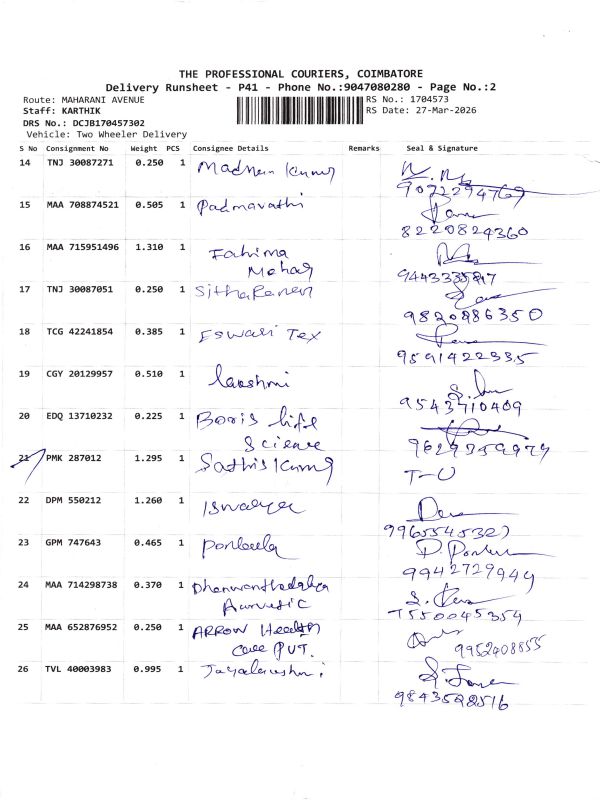 THE PROFESSIONAL COURIERS, COIMBATORE
Delivery Runsheet - P41 - Phone No.:9047080280 - Page No.:2
Route: MAHARANI AVENUE
RS No.: 1704573
Staff: KARTHIK
RS Date: 27-Mar-2026
DRS No.: DCJB170457302
Vehicle: Two Wheeler Delivery
S No Consignment No Weight PCS Consignee Details Remarks Seal & Signature
14 TNJ 30087271 0.250 1 Madhan Kumar
9072294769
15 MAA 708874521 0.505 1 Padmavathi
8220824360
16 MAA 715951496 1.310 1 Fahima
Mohar
17 TNJ 30087051 0.250 1
9820886350
18 TCG 42241854 0.385 1 Eswari Tex
9591422335
19 CGY 20129957 0.510 1 lakshmi
9543710409
20 EDQ 13710232 0.225 1 Booris life
Science
9629359979
21 PMK 287012 1.295 1 Sathis Kumar T-U
22 DPM 550212 1.260 1
9965545327
23 GPM 747643 0.465 1
9942729949
24 MAA 714298738 0.370 1
7550045354
25 MAA 652876952 0.250 1 ARROW Health
Care PVT.
9952408855
26 TVL 40003983 0.995 1 Jayalakshmi
9843528516